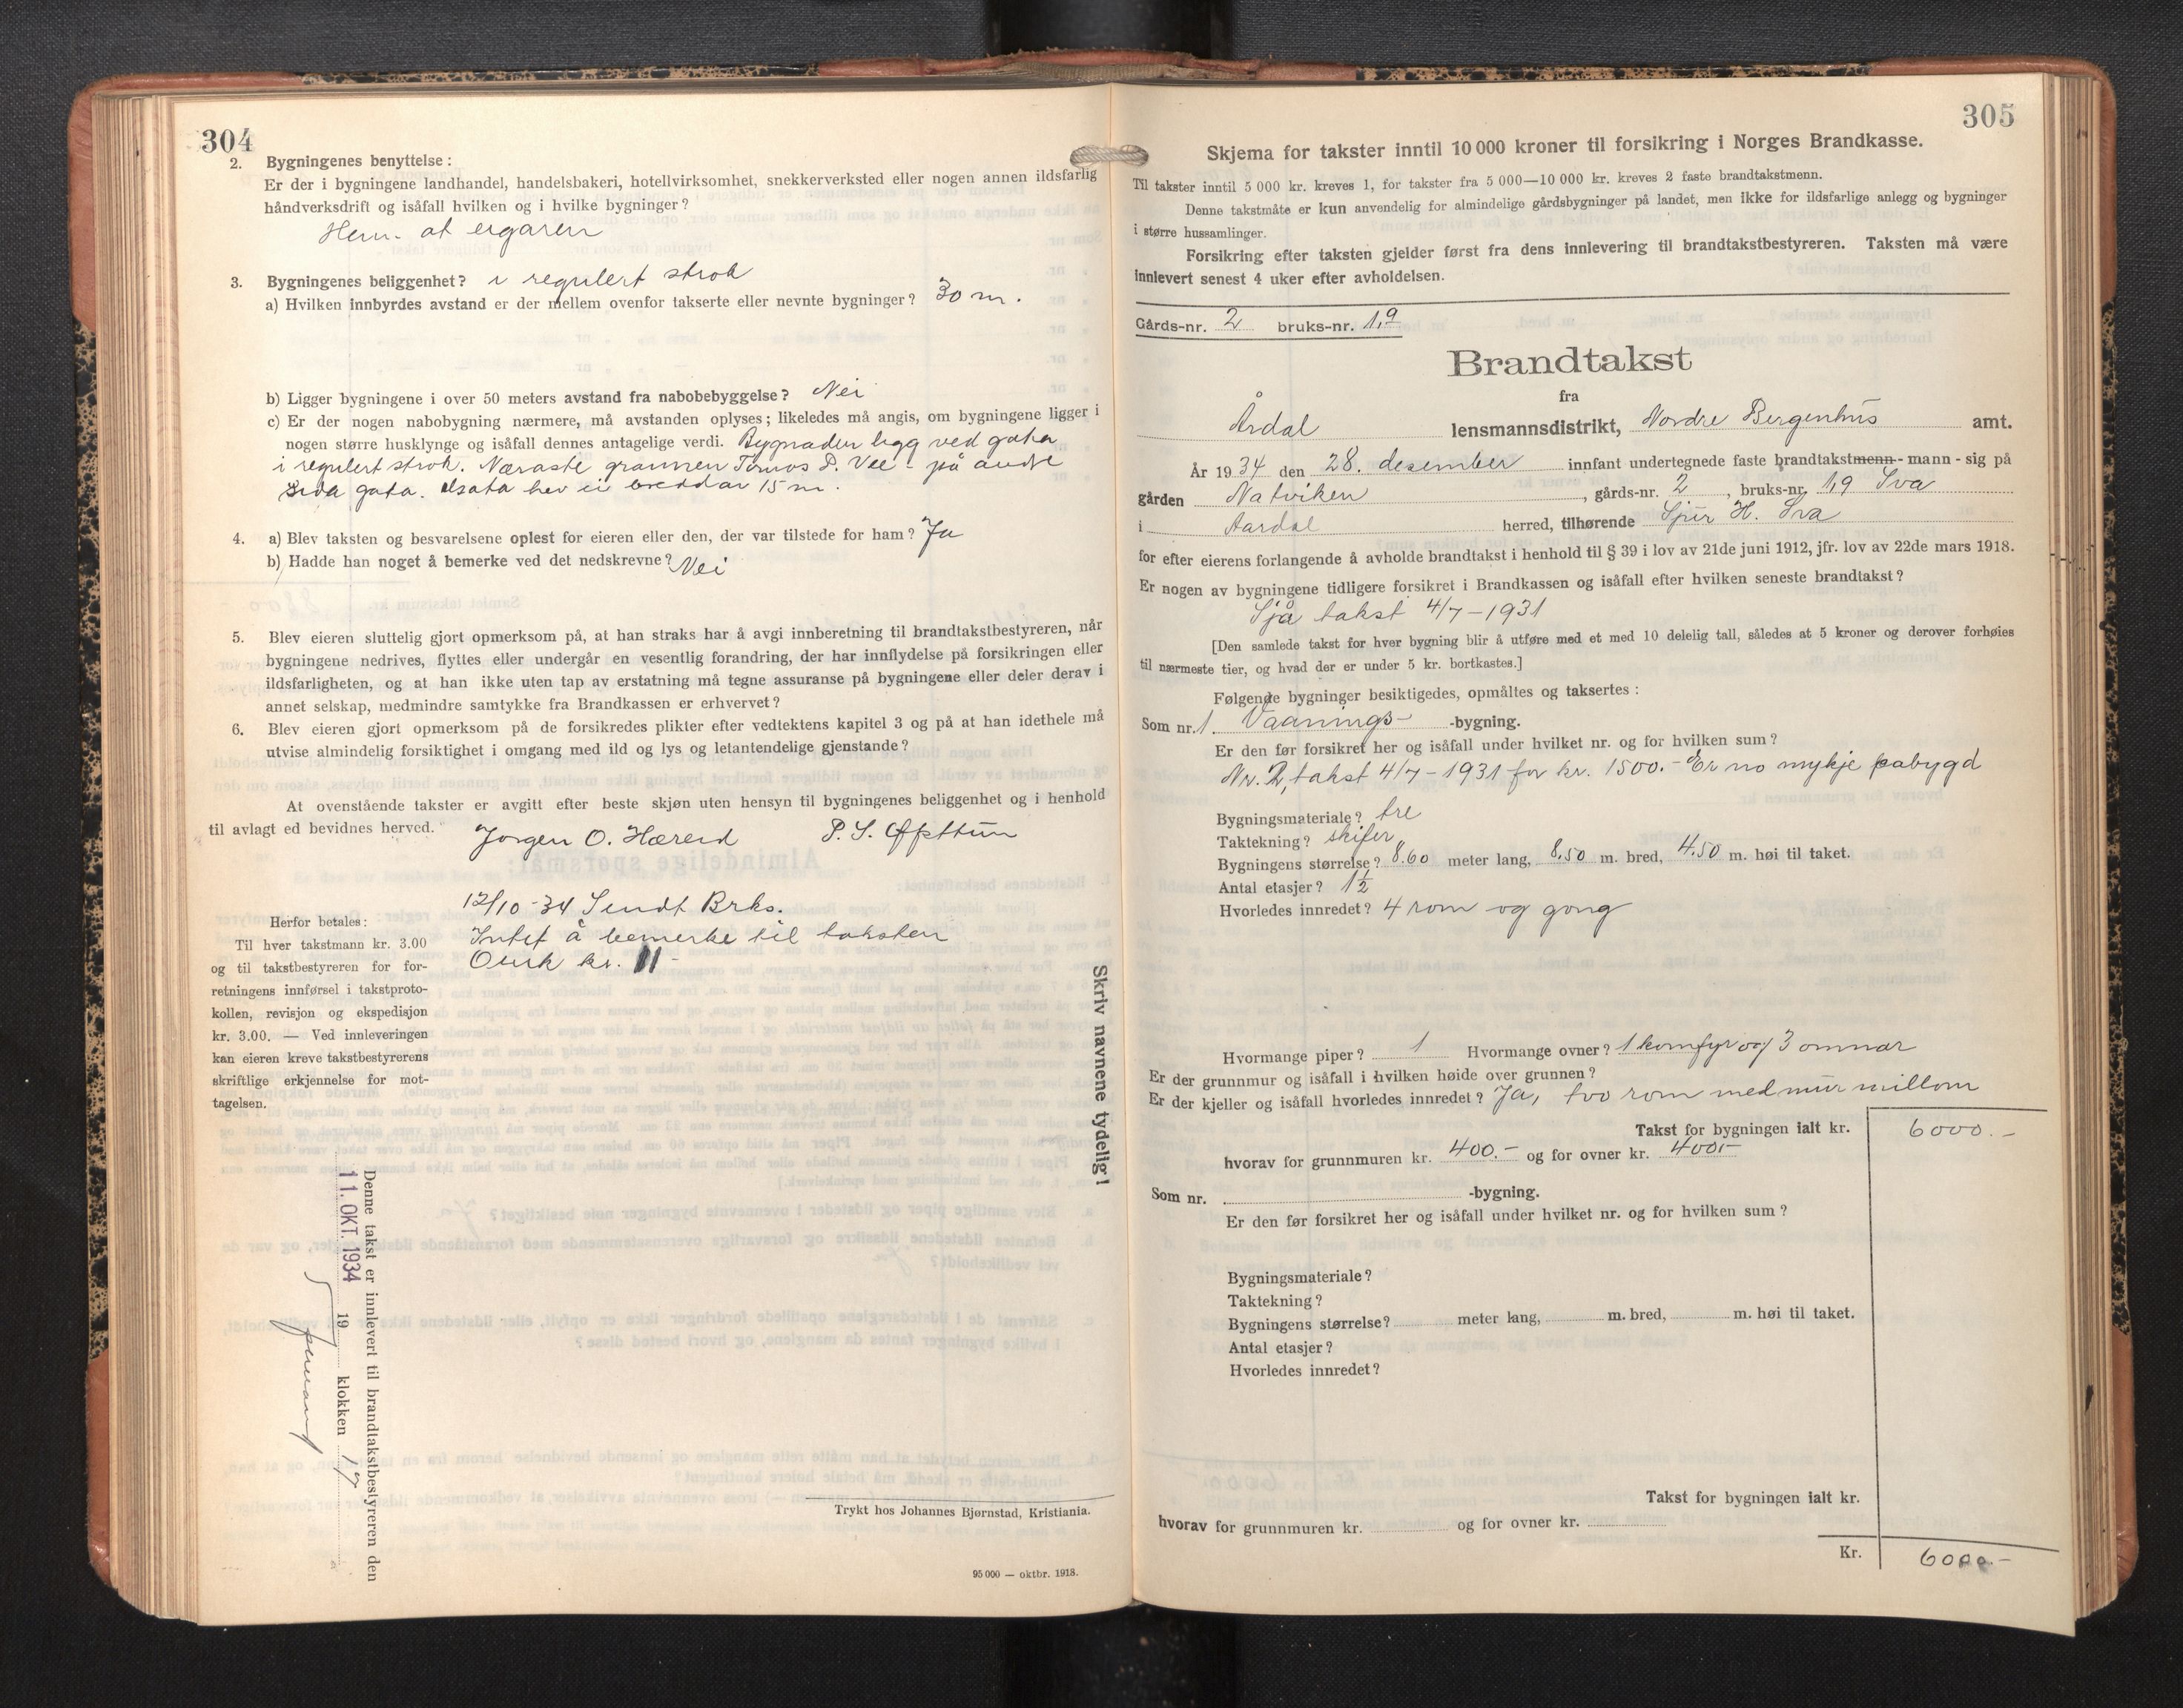 304
2. Bygningenes benyttelse:
Er der i bygningene landhandel, handelsbakeri, hotellvirksomhet, snekkerverksted eller nogen annen ildsfarlig
håndverksdrift og isåfall hvilken og i hvilke bygninger?
Heim at eigaren
3. Bygningenes beliggenhet? i regulert strok
a) Hvilken innbyrdes avstand er der mellem ovenfor takserte eller nevnte bygninger? 30 m.
b) Ligger bygningene i over 50 meters avstand fra nabobebyggelse? Nei
c) Er der nogen nabobygning nærmere, må avstanden oplyses; likeledes må angis, om bygningene ligger i
nogen større husklynge og isåfall dennes antagelige verdi. Bygnaden ligg ved gata
i regulert strok. Næraste grannen Tomos P. Vee - på andre
sida gata. Gata hev ei breidd av 15 m.
4. a) Blev taksten og besvarelsene oplest for eieren eller den, der var tilstede for ham? Ja
b) Hadde han noget å bemerke ved det nedskrevne? Nei
5. Blev eieren sluttelig gjort opmerksom på, at han straks har å avgi innberetning til brandtakstbestyreren, når
bygningene nedrives, flyttes eller undergår en vesentlig forandring, der har innflydelse på forsikringen eller
ildsfarligheten, og at han ikke uten tap av erstatning må tegne assuranse på bygningene eller deler derav i
annet selskap, medmindre samtykke fra Brandkassen er erhvervet?
6. Blev eieren gjort opmerksom på de forsikredes plikter efter vedtektens kapitel 3 og på at han idethele må
utvise almindelig forsiktighet i omgang med ild og lys og letantendelige gjenstande?
At ovenstående takster er avgitt efter beste skjøn uten hensyn til bygningenes beliggenhet og i henhold
til avlagt ed bevidnes herved.
Jørgen O. Hæreid P. S. Ofsttun
12/10-34 Sendt Brks.
Intet å bemerke til taksten
kr. 11-
Herfor betales:
Til hver takstmann kr. 3.00
og til takstbestyreren for for-
retningens innførsel i takstproto-
kollen, revisjon og ekspedisjon
kr. 3.00. — Ved innleveringen
kan eieren kreve takstbestyrerens
skriftlige erkjennelse for mot-
tagelsen.
Skriv navnene tydelig!
Denne takst er innlevert til brandtakstbestyreren den
11. OKT. 1934 19 klokken 17
Trykt hos Johannes Bjørnstad, Kristiania.
95 000 — oktbr. 1918.
305
Skjema for takster inntil 10 000 kroner til forsikring i Norges Brandkasse.
Til takster inntil 5 000 kr. kreves 1, for takster fra 5 000—10 000 kr. kreves 2 faste brandtakstmenn.
Denne takstmåte er kun anvendelig for almindelige gårdsbygninger på landet, men ikke for ildsfarlige anlegg og bygninger
i større hussamlinger.
Forsikring efter taksten gjelder først fra dens innlevering til brandtakstbestyreren. Taksten må være
innlevert senest 4 uker efter avholdelsen.
Gårds-nr. 2 bruks-nr. 1,9
Brandtakst
fra
Årdal lensmannsdistrikt, Nordre Bergenhus amt.
År 1934 den 28. desember innfant undertegnede faste brandtakstmenn - mann - sig på
gården Natviken, gårds-nr. 2, bruks-nr. 1,9 Sva
i Aardal herred, tilhørende H. Sva
for efter eierens forlangende å avholde brandtakst i henhold til § 39 i lov av 21de juni 1912, jfr. lov av 22de mars 1918.
Er nogen av bygningene tidligere forsikret i Brandkassen og isåfall efter hvilken seneste brandtakst?
Sjå takst 4/7-1931
[Den samlede takst for hver bygning blir å utføre med et med 10 delelig tall, således at 5 kroner og derover forhøies
til nærmeste tier, og hvad der er under 5 kr. bortkastes.]
Følgende bygninger besiktigedes, opmåltes og taksertes:
Som nr. 1 Vaanings- -bygning.
Er den før forsikret her og isåfall under hvilket nr. og for hvilken sum?
Nr. 2, takst 4/7-1931 for kr. 1500.- Er no mykje påbygd
Bygningsmateriale? tre
Taktekning? skifer
Bygningens størrelse? 8.60 meter lang, 8,50 m. bred, 4.50 m. høi til taket.
Antal etasjer? 1½
Hvorledes innredet? 4 rom og gong
Hvormange piper? 1 Hvormange ovner? 1 komfyr og 3 omnar
Er der grunnmur og isåfall i hvilken høide over grunnen?
Er der kjeller og isåfall hvorledes innredet? Ja, tvo rom med mur millom
Takst for bygningen ialt kr. 6000.-
hvorav for grunnmuren kr. 400.- og for ovner kr. 400.-
Som nr. -bygning.
Er den før forsikret her og isåfall under hvilket nr. og for hvilken sum?
Bygningsmateriale?
Taktekning?
Bygningens størrelse? meter lang, m. bred, m. høi til taket.
Antal etasjer?
Hvorledes innredet?
Takst for bygningen ialt kr.
hvorav for grunnmuren kr. og for ovner kr.
Kr. 6000.-